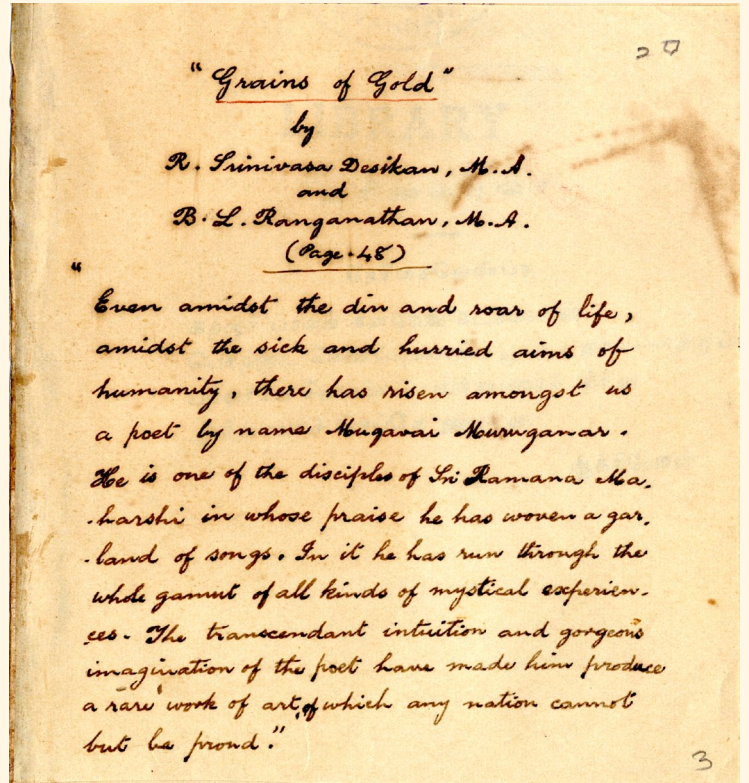 20
"Grains of Gold"
by
R. Srinivasa Desikan, M.A.
and
B. L. Ranganathan, M.A.
(Page. 48)
"Even amidst the din and roar of life,
amidst the sick and hurried aims of
humanity, there has risen amongst us
a poet by name Mugavai Muruganar.
He is one of the disciples of Sri Ramana Ma-
-harshi in whose praise he has woven a gar-
-land of songs. In it he has run through the
whole gamut of all kinds of mystical experien-
ces. The transcendant intuition and gorgeous
imagination of the poet have made him produce
a rare work of art, of which any nation cannot
but be proud."
3